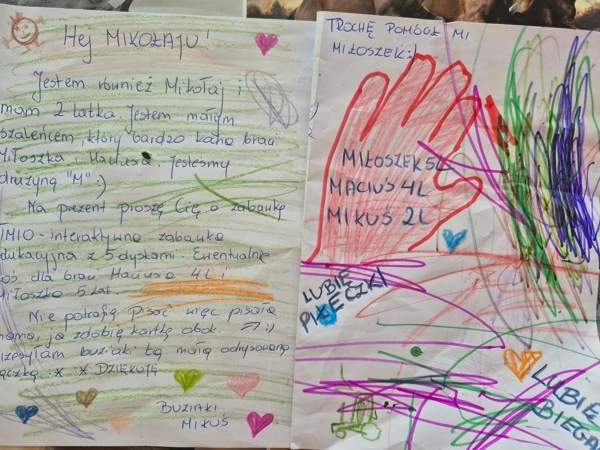 Hej MIKOŁAJU!
Jestem również Mikołaj i
mam 2 latka. Jestem małym
szaleńcem, który bardzo kocha braci
Miłoszka i Maciusia. Jesteśmy
drużyną "M" :)
Na prezent proszę Cię o zabawkę
TIMIO - interaktywna zabawka
edukacyjna z 5 dyskami. Ewentualnie
coś dla braci Maciusia 4L i
Miłoszka 5 lat.
Nie potrafię pisać więc pisała
mama, ja zdobię kartkę obok. => :)
Przesyłam buziaki tą małą odrysowaną
rączką :x :x DZIĘKUJĘ
BUZIAKI
MIKUŚ
TROCHĘ POMÓGŁ MI
MIŁOSZEK :)
MIŁOSZEK 5L
MACIUŚ 4L
MIKUŚ 2L
LUBIĘ
PIŁECZKI
LUBIĘ